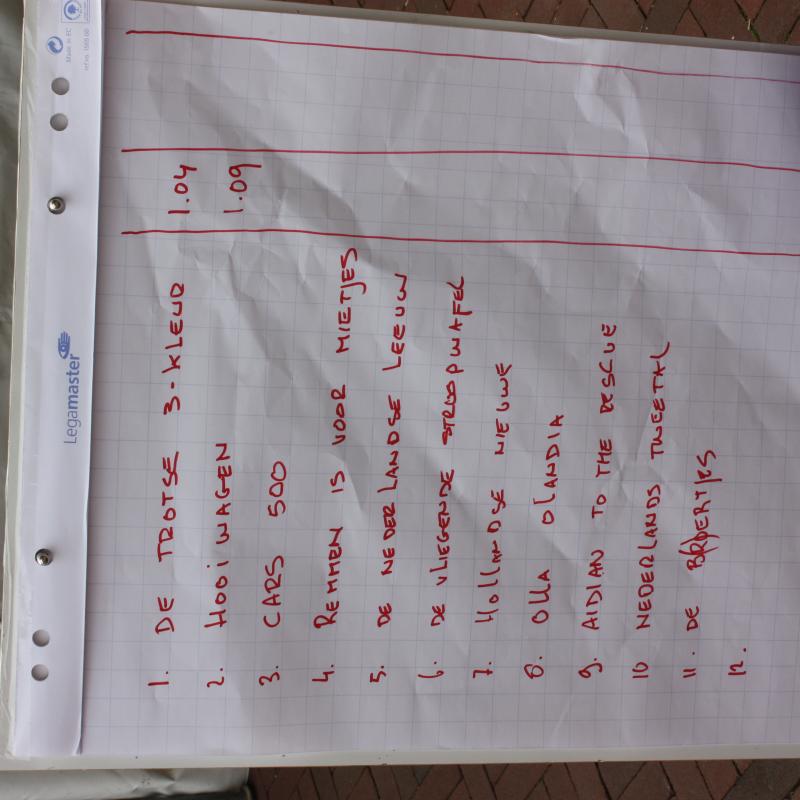 Legamaster
Made in EC
1. DE TROTSE 3-KLEUR 1.04
2. HOOIWAGEN 1.09
3. CARS 500
4. REMMEN IS VOOR MIETJES
5. DE NEDERLANDSE LEEUW
6. DE VLIEGENDE STROOPWAFEL
7. HOLLANDSE NIEUWE
8. OLLA OLANDIA
9. AIDIAN TO THE RESCUE
10 NEDERLANDS TWEETAL
11. DE BROERTJES
12.